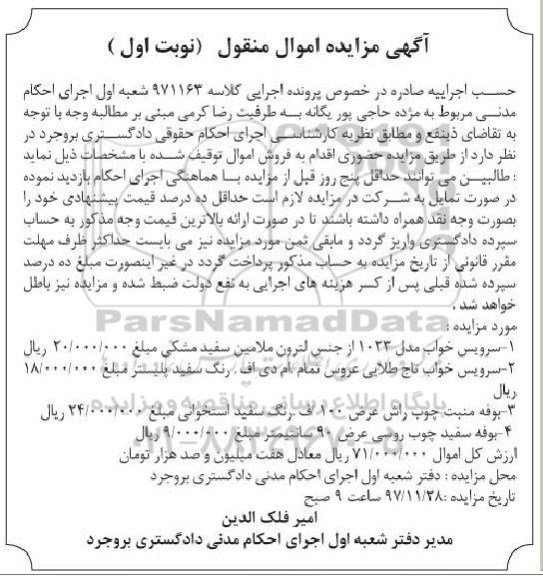 آگهی مزایده اموال منقول (نوبت اول)
حسب اجراییه صادره در خصوص پرونده اجرایی کلاسه ۹۷۱۱۶۳ شعبه اول اجرای احکام
مدنی مربوط به مژده حاجی پور یگانه به طرفیت رضا کرمی مبنی بر مطالبه وجه با توجه
به تقاضای ذینفع و مطابق نظریه کارشناسی اجرای احکام حقوقی دادگستری بروجرد در
نظر دارد از طریق مزایده حضوری اقدام به فروش اموال توقیف شده با مشخصات ذیل نماید
: طالبین می توانند حداقل پنج روز قبل از مزایده با هماهنگی اجرای احکام بازدید نموده
در صورت تمایل به شرکت در مزایده لازم است حداقل ده درصد قیمت پیشنهادی خود را
بصورت وجه نقد همراه داشته باشند تا در صورت ارائه بالاترین قیمت وجه مذکور به حساب
سپرده دادگستری واریز گردد و مابقی ثمن مورد مزایده نیز می بایست حداکثر ظرف مهلت
مقرر قانونی از تاریخ مزایده به حساب مذکور پرداخت گردد در غیر اینصورت مبلغ ده درصد
سپرده شده قبلی پس از کسر هزینه های اجرایی به نفع دولت ضبط شده و مزایده نیز باطل
خواهد شد .
مورد مزایده :
۱-سرویس خواب مدل ۱۰۲۳ از جنس لترون ملامین سفید مشکی مبلغ ۲۰/۰۰۰/۰۰۰ ریال
۲-سرویس خواب تاج طلایی عروس تمام ام دی اف . رنگ سفید پلیستر مبلغ ۱۸/۰۰۰/۰۰۰
ریال
۳-بوفه منبت چوب راش عرض ۱۰۰ ف .رنگ سفید استخوانی مبلغ ۲۴/۰۰۰/۰۰۰ ریال
۴-بوفه سفید چوب روسی عرض ۹۰ سانتیمتر مبلغ ۹/۰۰۰/۰۰۰ ریال
ارزش کل اموال ۷۱/۰۰۰/۰۰۰ ریال معادل هفت میلیون و صد هزار تومان
محل مزایده : دفتر شعبه اول اجرای احکام مدنی دادگستری بروجرد
تاریخ مزایده :۹۷/۱۱/۲۸ ساعت ۹ صبح
امیر فلک الدین
مدیر دفتر شعبه اول اجرای احکام مدنی دادگستری بروجرد
ParsNamadData